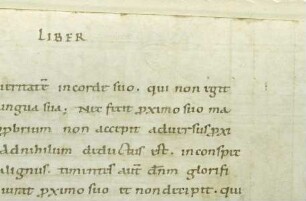 LIBER
ueritatē incorde suo. qui non egit
lingua sua; Nec fecit pximo suo ma
pprbrium non accepit adversus pxi
adnihilum deductus est. inconspec
alignus. timentes aut dnm glorifi
iurat pximo suo et non decipit. qui